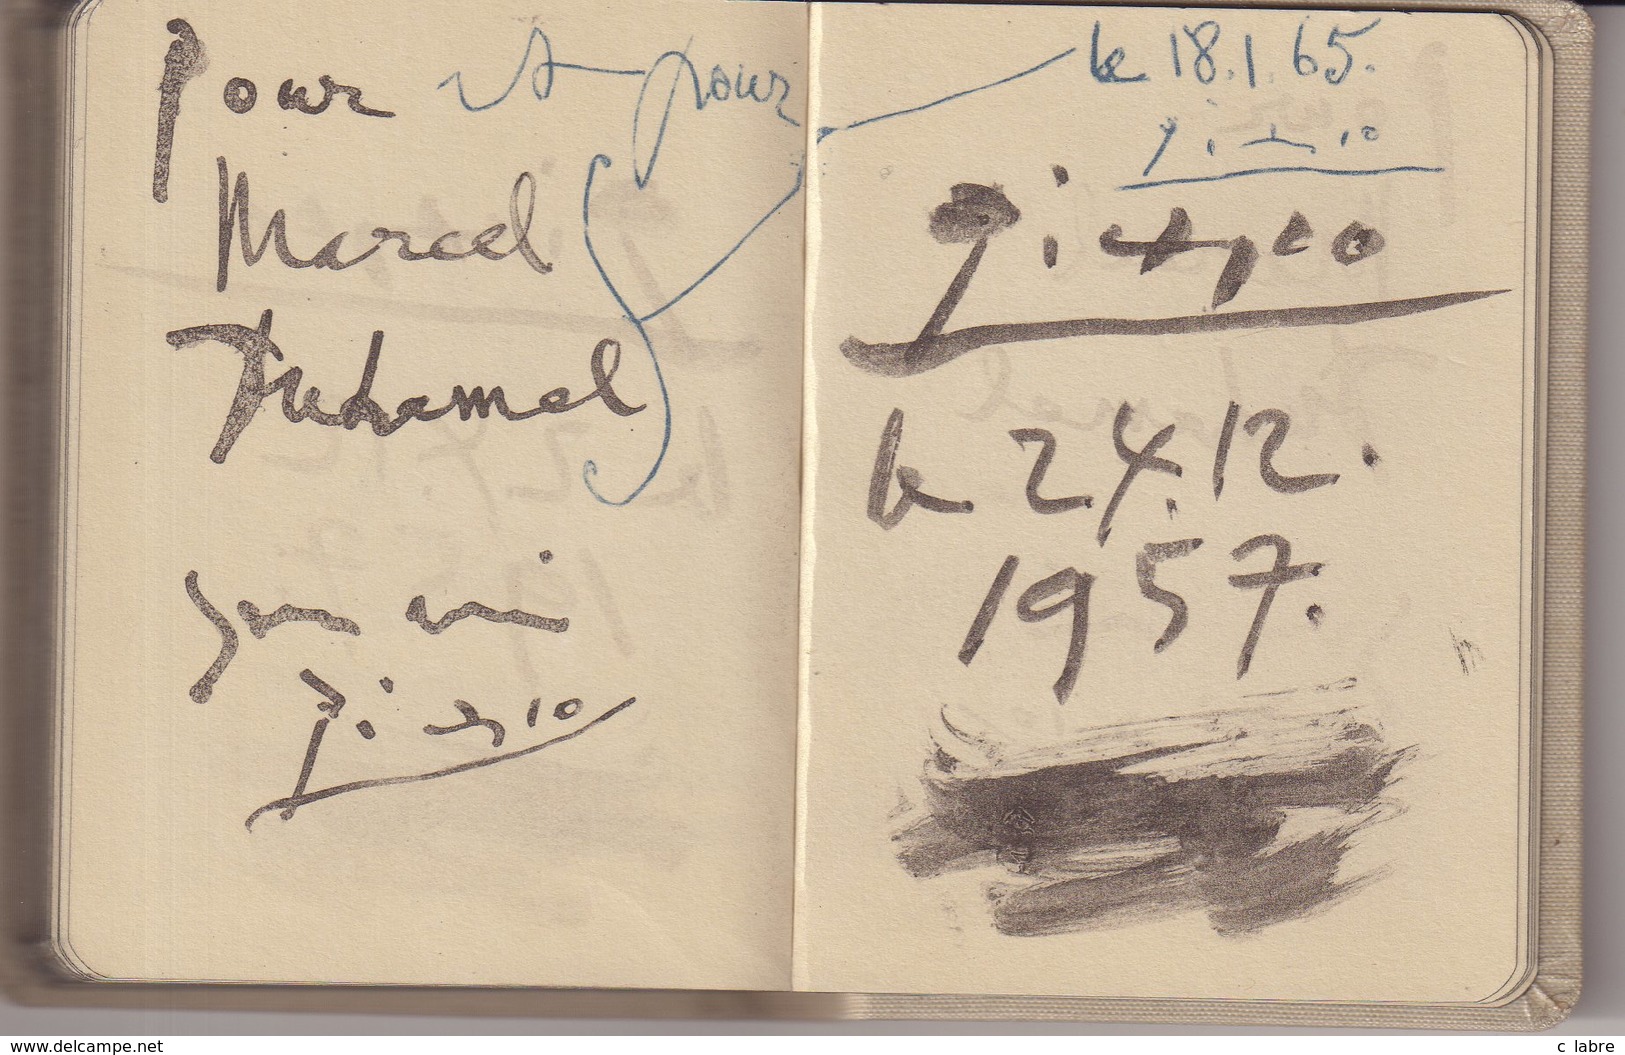 Pour et pour
Marcel
Duhamel
Son ami
Picasso
le 18.1.65.
Picasso
Picasso
le 24.12.
1957.
www.delcampe.net
c labre